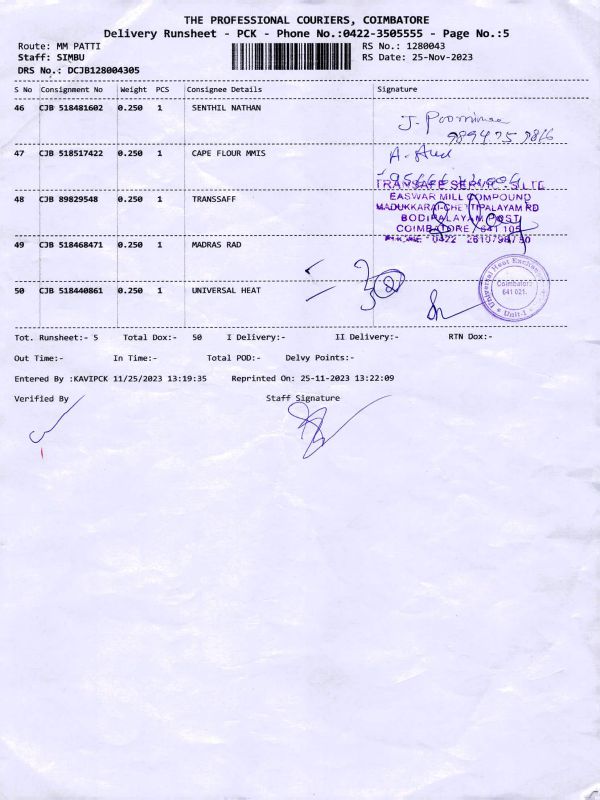 THE PROFESSIONAL COURIERS, COIMBATORE
Delivery Runsheet - PCK - Phone No.:0422-3505555 - Page No.:5
Route: MM PATTI RS No.: 1280043
Staff: SIMBU RS Date: 25-Nov-2023
DRS No.: DCJB128004305
S No Consignment No Weight PCS Consignee Details Signature
46 CJB 518481602 0.250 1 SENTHIL NATHAN
J. Poornima
47 CJB 518517422 0.250 1 CAPE FLOUR MMIS
48 CJB 89829548 0.250 1 TRANSSAFF
EASWAR MILL COMPOUND
MADUKKARAI-CHETTIPALAYAM RD
BODIPALAYAM POST
COIMBATORE 641 105
49 CJB 518468471 0.250 1 MADRAS RAD
50 CJB 518440861 0.250 1 UNIVERSAL HEAT
Universal Heat Exchan
Coimbatore
641 021.
Unit-I
Tot. Runsheet:- 5 Total Dox:- 50 I Delivery:- II Delivery:- RTN Dox:-
Out Time:- In Time:- Total POD:- Delvy Points:-
Entered By :KAVIPCK 11/25/2023 13:19:35 Reprinted On: 25-11-2023 13:22:09
Verified By Staff Signature